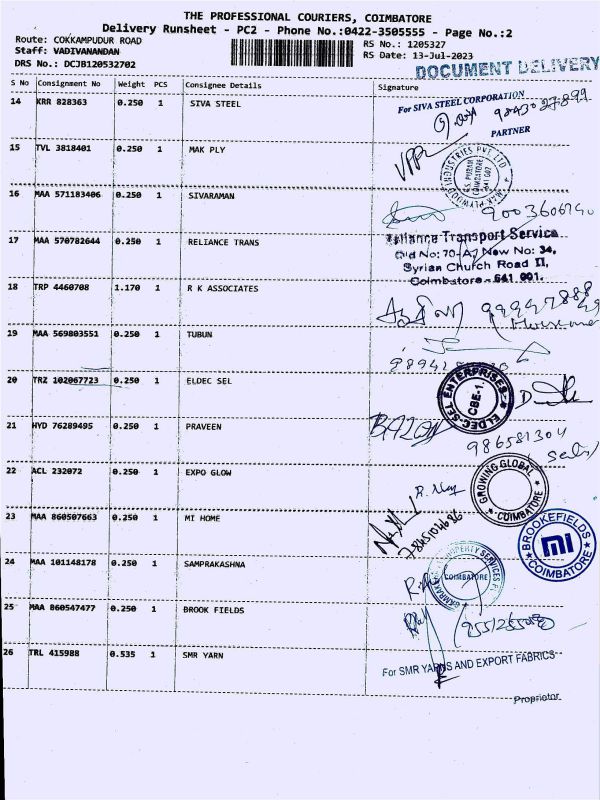 THE PROFESSIONAL COURIERS, COIMBATORE
Delivery Runsheet - PC2 - Phone No.:0422-3505555 - Page No.:2
Route: COKKAMPUDUR ROAD
RS No.: 1205327
Staff: VADIVANANDAN
RS Date: 13-Jul-2023
DRS No.: DCJB120532702
DOCUMENT DELIVERY
S No Consignment No Weight PCS Consignee Details Signature
14 KRR 828363 0.250 1 SIVA STEEL
For SIVA STEEL CORPORATION
PARTNER
15 TVL 3818401 0.250 1 MAK PLY
MAK PLYWOOD INDUSTRIES PVT LTD
16 MAA 571183406 0.250 1 SIVARAMAN
17 MAA 570782644 0.250 1 RELIANCE TRANS
Reliance Transport Service
Old No: 70-A, New No: 34,
Syrian Church Road II,
Coimbatore - 641 001.
18 TRP 4460708 1.170 1 R K ASSOCIATES
19 MAA 569803551 0.250 1 TUBUN
20 TRZ 102067723 0.250 1 ELDEC SEL
ELDEC-SEL ENTERPRISES
CBE-1
21 HYD 76289495 0.250 1 PRAVEEN
986581304
22 ACL 232072 0.250 1 EXPO GLOW
GROWING GLOBAL
COIMBATORE
23 MAA 860507663 0.250 1 MI HOME
BROOKEFIELDS
MI
COIMBATORE
24 MAA 101148178 0.250 1 SAMPRAKASHNA
PROPERTY SERVICES
COIMBATORE
25 MAA 860547477 0.250 1 BROOK FIELDS
26 TRL 415988 0.535 1 SMR YARN
For SMR YARNS AND EXPORT FABRICS
Proprietor